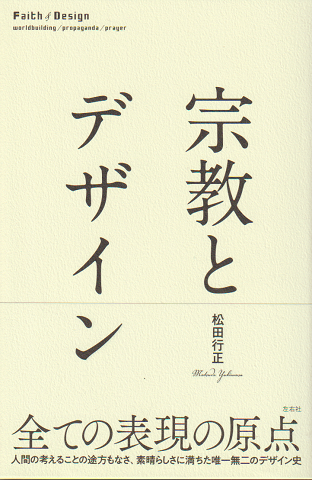 Faith of Design
worldbuilding/propaganda/prayer
宗教と
デザイン
松田行正
Matsuda Yukimasa
左右社
全ての表現の原点
人間の考えることの途方もなさ、素晴らしさに満ちた唯一無二のデザイン史